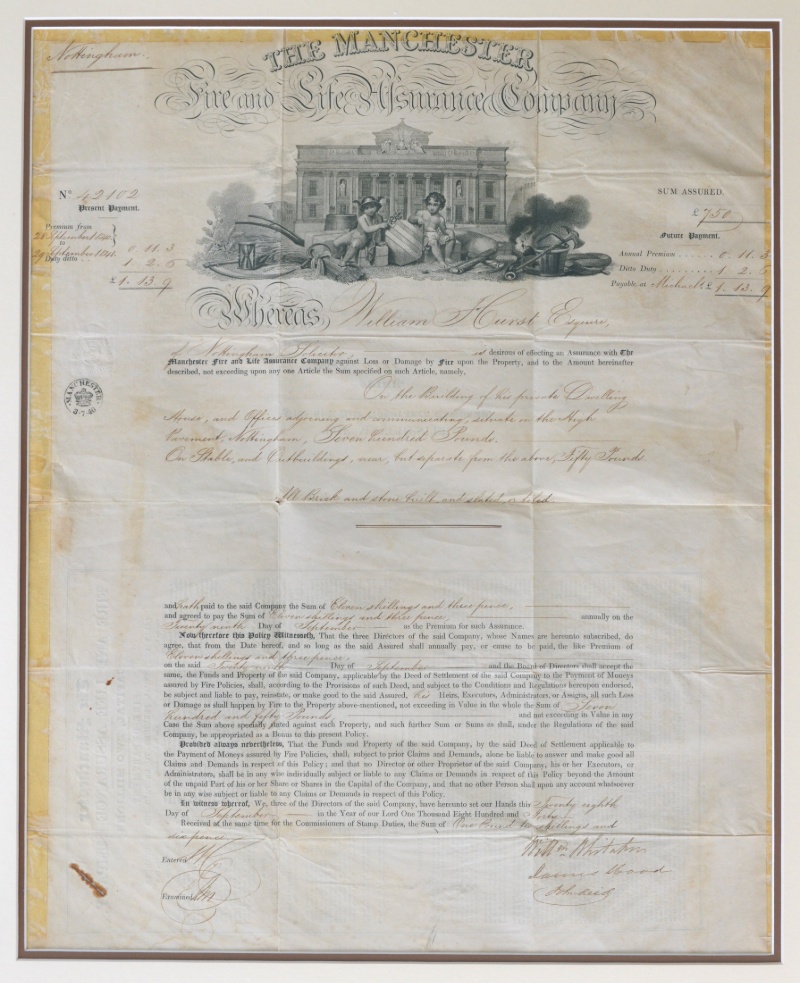 Nottingham.
THE MANCHESTER
Fire and Life Assurance Company
No 42102
Present Payment.
Premium from
28 September 1840
to
29 September 1841.
0 11. 3
Duty ditto . .
1. 2. 6
£ 1. 13. 9
SUM ASSURED.
£750
Future Payment.
Annual Premium . . . . . . . 0. 11. 3
Ditto Duty . . . . . . . . 1. 2. 6
Payable at Michaels £ 1. 13. 9
Whereas, William Hurst Esquire,
of Nottingham, Solicitor, is desirous of effecting an Assurance with The
Manchester Fire and Life Assurance Company against Loss or Damage by Fire upon the Property, and to the Amount hereinafter
described, not exceeding upon any one Article the Sum specified on such Article, namely,
MANCHESTER
3·7·40
On the Building of his private Dwelling
House, and Offices adjoining and communicating, situate in the High
Pavement, Nottingham, Seven hundred Pounds.
On Stable, and Outbuildings, near, but separate from the above, Fifty Pounds.
All Brick and stone built, and slated, or tiled.
and hath paid to the said Company the Sum of Eleven shillings and three pence,
and agreed to pay the Sum of Eleven shillings and three pence, annually on the
Twenty ninth Day of September as the Premium for such Assurance.
Now therefore this Policy Witnesseth, That the three Directors of the said Company, whose Names are hereunto subscribed, do
agree, that from the Date hereof, and so long as the said Assured shall annually pay, or cause to be paid, the like Premium of
Eleven shillings and three pence,
on the said Twenty ninth Day of September and the Board of Directors shall accept the
same, the Funds and Property of the said Company, applicable by the Deed of Settlement of the said Company to the Payment of Moneys
assured by Fire Policies, shall, according to the Provisions of such Deed, and subject to the Conditions and Regulations hereupon endorsed,
be subject and liable to pay, reinstate, or make good to the said Assured, his Heirs, Executors, Administrators, or Assigns, all such Loss
or Damage as shall happen by Fire to the Property above-mentioned, not exceeding in Value in the whole the Sum of Seven
hundred and fifty Pounds, and not exceeding in Value in any
Case the Sum above specially stated against each Property, and such further Sum or Sums as shall, under the Regulations of the said
Company, be appropriated as a Bonus to this present Policy.
Provided always nevertheless, That the Funds and Property of the said Company, by the said Deed of Settlement applicable to
the Payment of Moneys assured by Fire Policies, shall, subject to prior Claims and Demands, alone be liable to answer and make good all
Claims and Demands in respect of this Policy; and that no Director or other Proprietor of the said Company, his or her Executors, or
Administrators, shall be in any wise individually subject or liable to any Claims or Demands in respect of this Policy beyond the Amount
of the unpaid Part of his or her Share or Shares in the Capital of the Company, and that no other Person shall upon any account whatsoever
be in any wise subject or liable to any Claims or Demands in respect of this Policy.
In witness whereof, We, three of the Directors of the said Company, have hereunto set our Hands this Twenty eighth
Day of September in the Year of our Lord One Thousand Eight Hundred and Forty
Received at the same time for the Commissioners of Stamp Duties, the Sum of One Pound two shillings and
six pence
Entered
Examined
James Wood